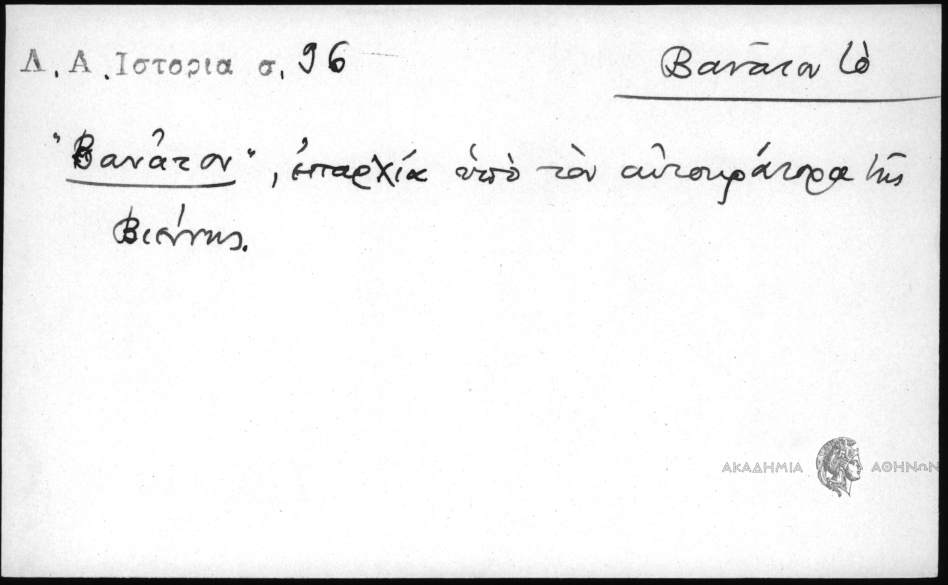 Λ. Α. Ιστορια σ. 96
Βανᾶτον τὸ
"Βανᾶτον", ἐπαρχία ὑπὸ τὸν αὐτοκράτορα τῆς
Βιέννης.
ΑΚΑΔΗΜΙΑ ΑΘΗΝΩΝ